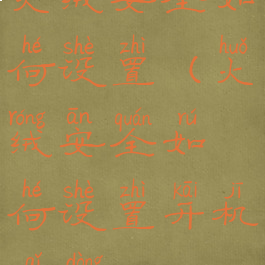 火绒安全如
hé shè zhì huǒ
何设置(火
róng ān quán rú
绒安全如
hé shè zhì kāi jī
何设置开机